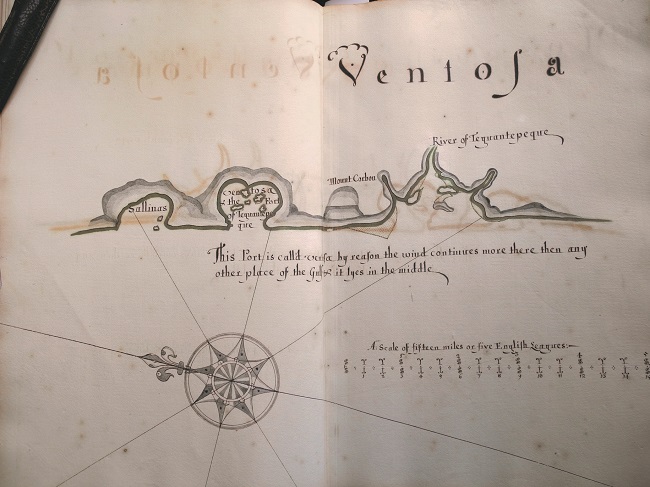 Ventoſa
River of Tequantepeque
Mount Carbon
Sallinas
Port
This Port is calld by reaſon the wind continues more there then any
other place of the it lyes in the middle
A Scale of fifteen miles or five English Leagues: